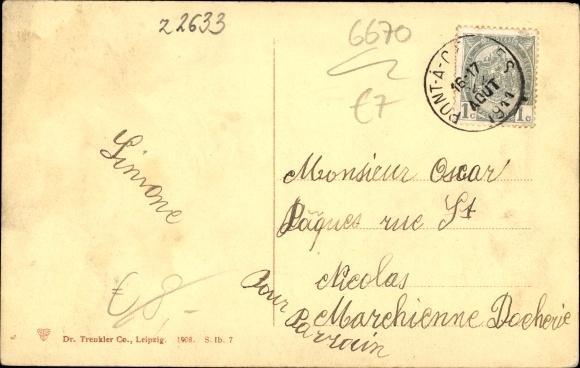 z 2633
6670
€7
PONT-À-C
16-17
AOUT
1911
1c 1c
Simone
Monsieur Oscar
Pâques rue St
Nicolas
Marchienne Docherie
Pour
Parrain
€8,-
Dr. Trenkler Co., Leipzig. 1908. S. Ib. 7